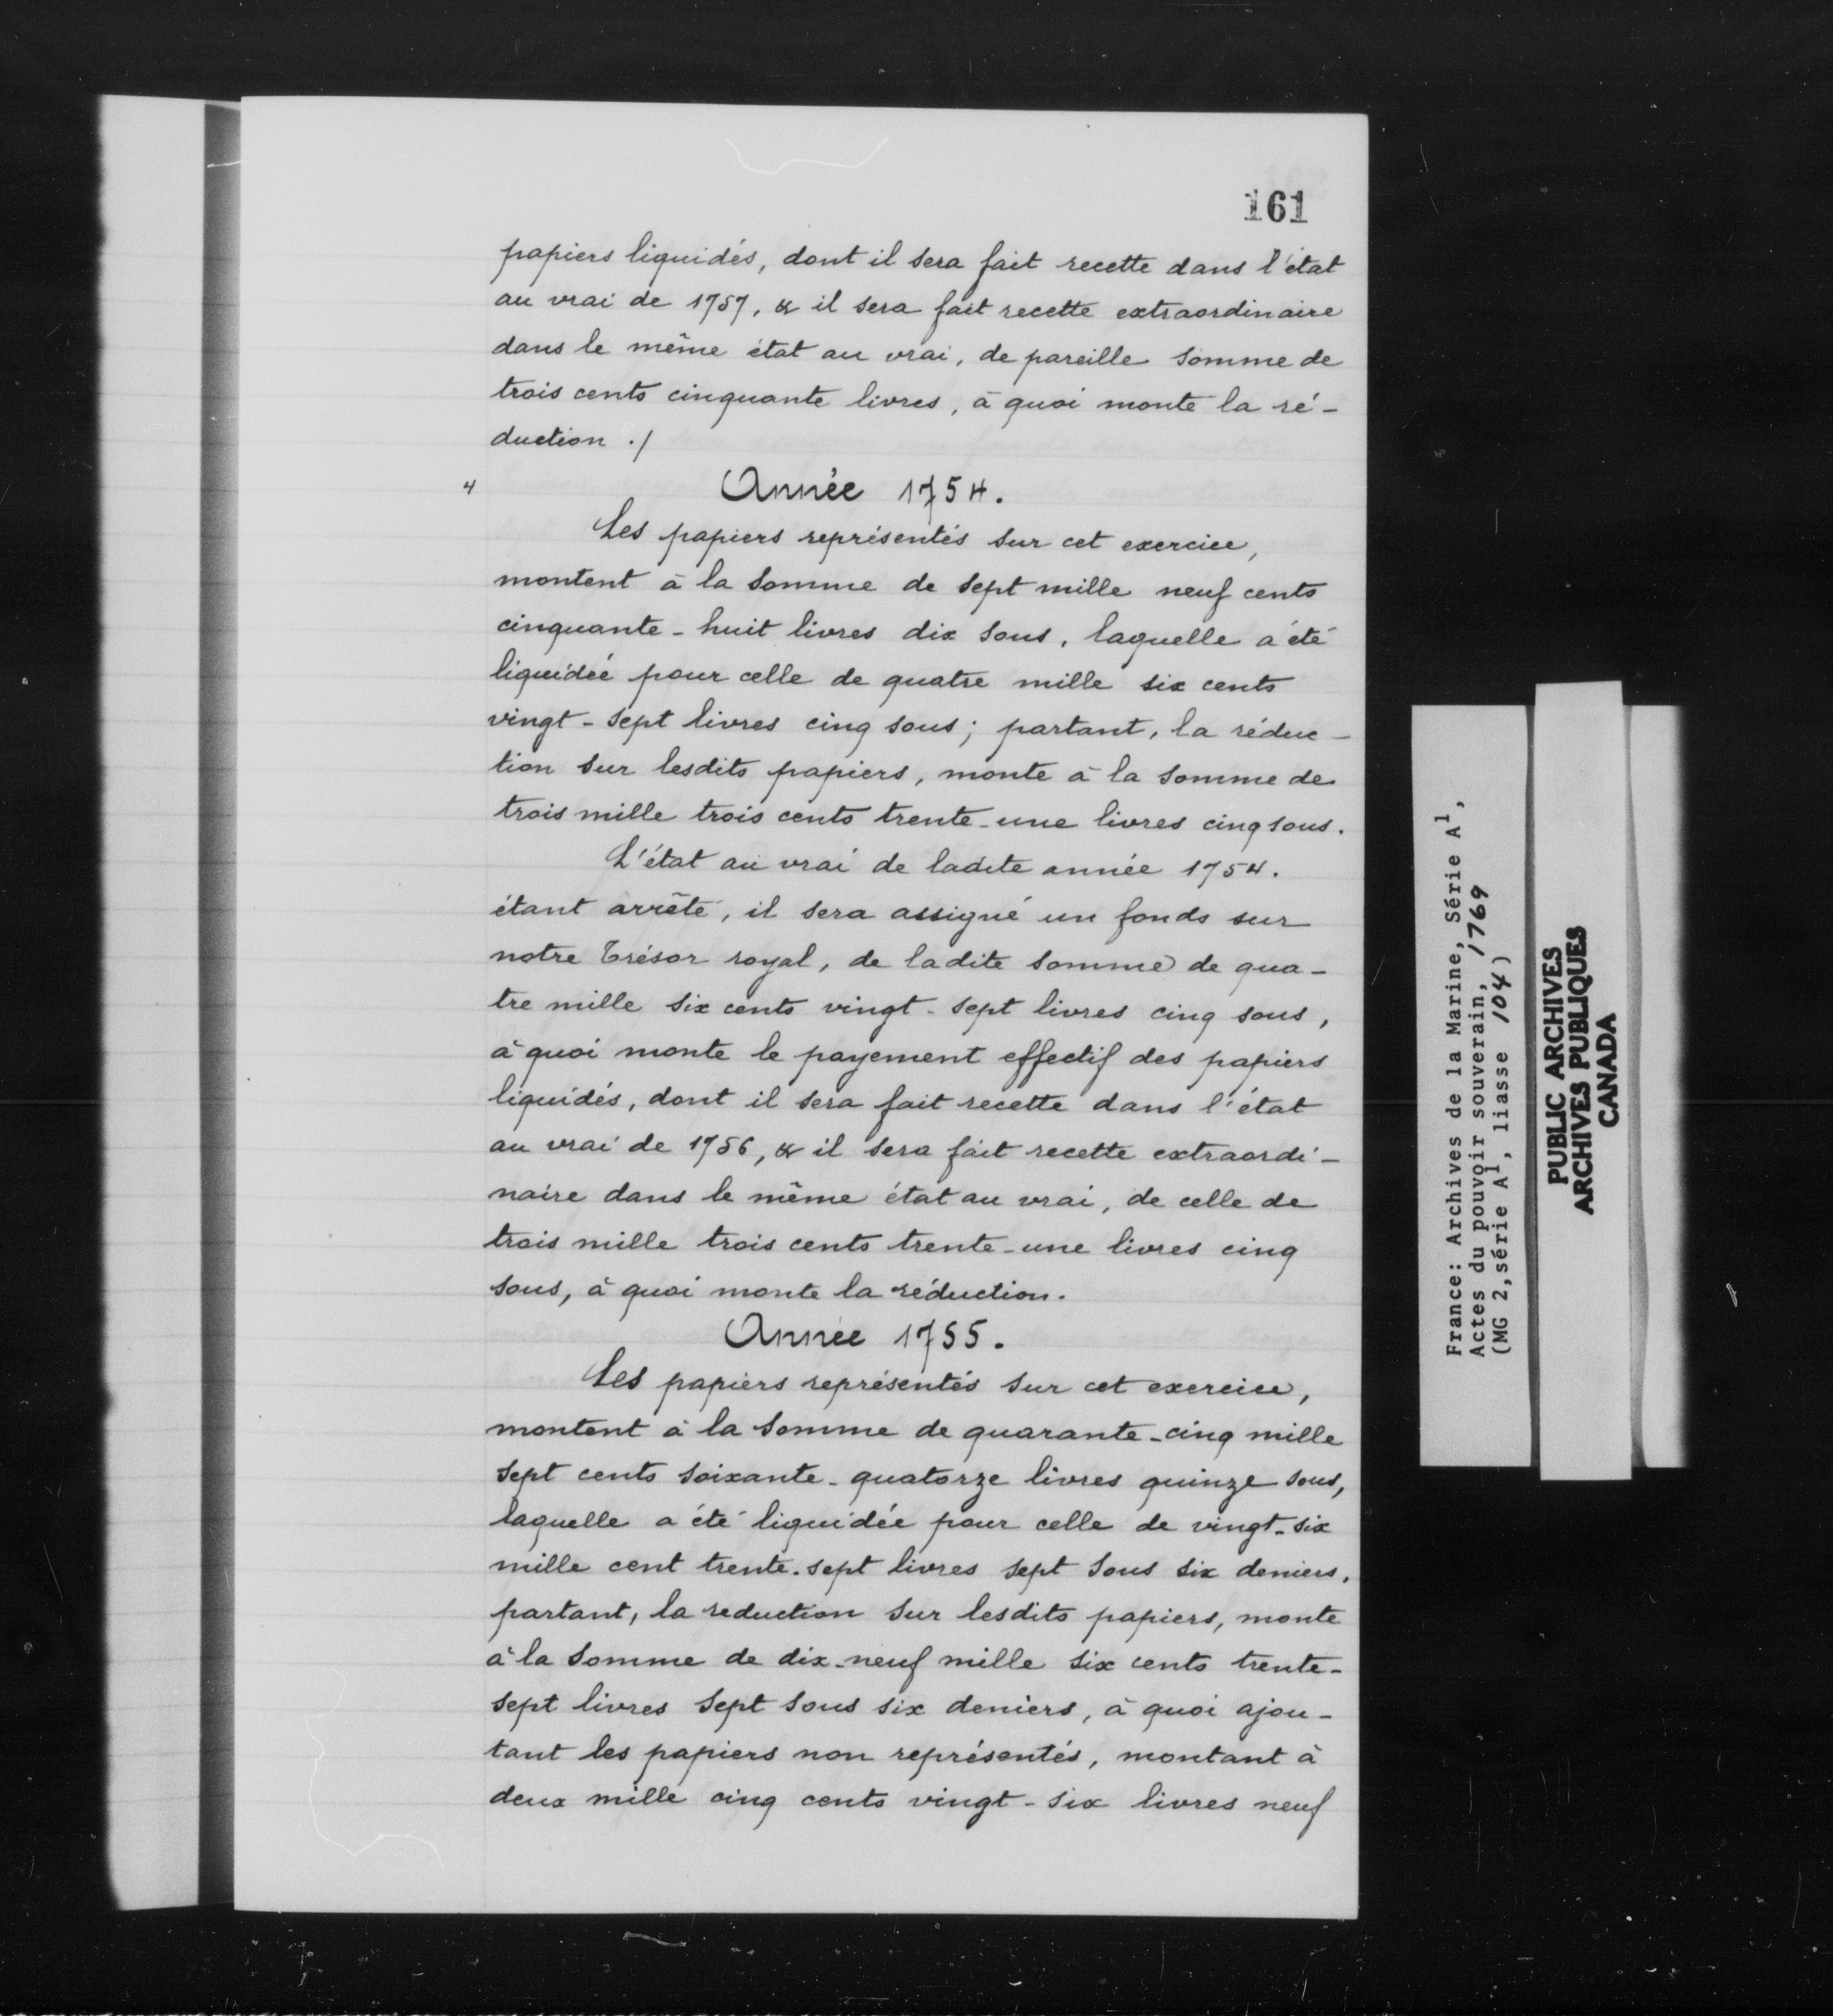 161
papiers liquidés, dont il sera fait recette dans l'état
au vrai de 1757, & il sera fait recette extraordinaire
dans le même état au vrai, de pareille somme de
trois cents cinquante livres, à quoi monte la ré-
duction ./
4
Année 1754.
Les papiers représentés sur cet exercice,
montent à la somme de sept mille neuf cents
cinquante-huit livres dix sous, laquelle a été
liquidée pour celle de quatre mille six cents
vingt-sept livres cinq sous; partant, la réduc-
tion sur lesdits papiers, monte à la somme de
trois mille trois cents trente-une livres cinq sous.
L'état au vrai de ladite année 1754.
étant arrêté, il sera assigné un fonds sur
notre Trésor royal, de ladite somme de qua-
tre mille six cents vingt-sept livres cinq sous,
à quoi monte le payement effectif des papiers
liquidés, dont il sera fait recette dans l'état
au vrai de 1756, & il sera fait recette extraordi-
naire dans le même état au vrai, de celle de
trois mille trois cents trente-une livres cinq
sous, à quoi monte la réduction.
Année 1755.
Les papiers représentés sur cet exercice,
montent à la somme de quarante-cinq mille
sept cents soixante-quatorze livres quinze sous,
laquelle a été liquidée pour celle de vingt-six
mille cent trente-sept livres sept sous six deniers,
partant, la reduction sur lesdits papiers, monte
à la somme de dix-neuf mille six cents trente-
sept livres sept sous six deniers, à quoi ajou-
tant les papiers non représentés, montant à
deux mille cinq cents vingt-six livres neuf
France: Archives de la Marine, Série A1,
Actes du pouvoir souverain, 1769
(MG 2,série A1, liasse 104)
PUBLIC ARCHIVES
ARCHIVES PUBLIQUES
CANADA